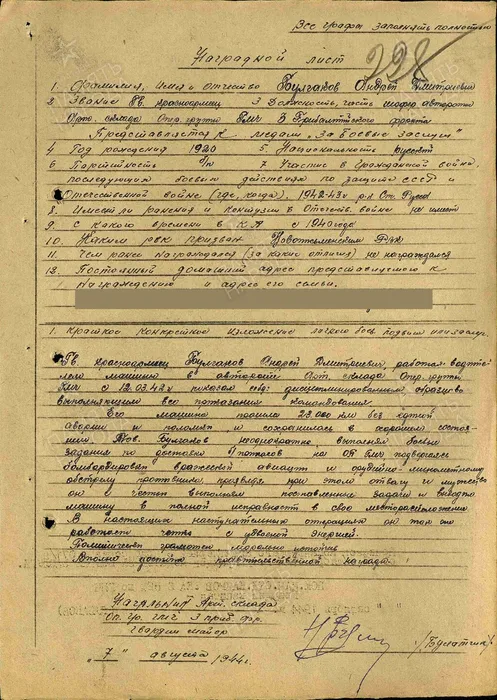 Все графы заполнять полностью
228
Наградной лист
1. Фамилия, Имя и Отчество Булгаков Андрей Дмитриевич
2. Звание Гв. красноармеец 3 Должность, часть шофер авторота
Арт. склада Опр. группы ГМЧ 3 Прибалтийского фронта
Представляется к медали "За Боевые заслуги"
4. Год рождения 1920 5 Национальность русский
6. Партийность б/п 7 Участие в гражданской войне,
последующих боевых действиях по защите СССР и
Отечественной войне (где, когда), 1942-43г р-н Ст. Русса
8. Имеет ли ранения и контузии в Отечеств. войне не имеет
9. с какого времени в К.А с 1940 года
10. Каким рвк призван
11. Чем ранее награждался (за какие отличия) не награждался
12. Постоянный домашний адрес представляемого к
награждению и адрес его семьи.
1. Краткое конкретное изложение личного боев. подвига или заслуг.
Гв. красноармеец Булгаков Андрей Дмитриевич работая водите
лем машины в автороте Арт. склада Опр. группы
ГМЧ с 12.03.42г показал себя дисциплинированным образцово
выполняющим все приказания командования.
Его машина прошла 23.000 км без
аварий и поломок и сохранилась в хорошем состоя-
нии. Тов. Булгаков неоднократно выполнял боевые
задания по доставке б/припасов на ОП ГМЧ подвергаясь
бомбардировки вражеской авиации и орудийно-минометному
обстрелу противника, проявляя при этом отвагу и мужество
он с честью выполнял поставленные задачи и выводил
машину в полной исправности в свое месторасположение
В настоящих наступательных операциях он так же
работает четко с удвоенной энергией.
Политически грамотен морально устойчив
Вполне достоин правительственной награды.
Начальник Арт. склада
Оп. гр. ГМЧ 3 приб. фр.
гвардии майор
"7" августа 1944г.